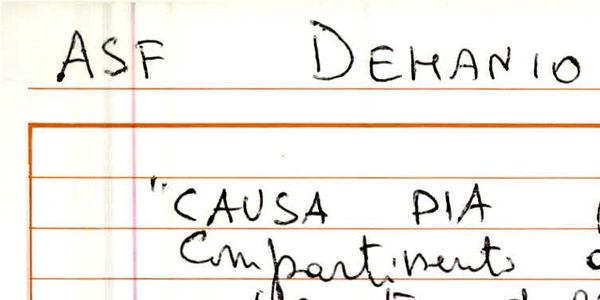 ASF DEMANIO
"CAUSA PIA
Compartimento